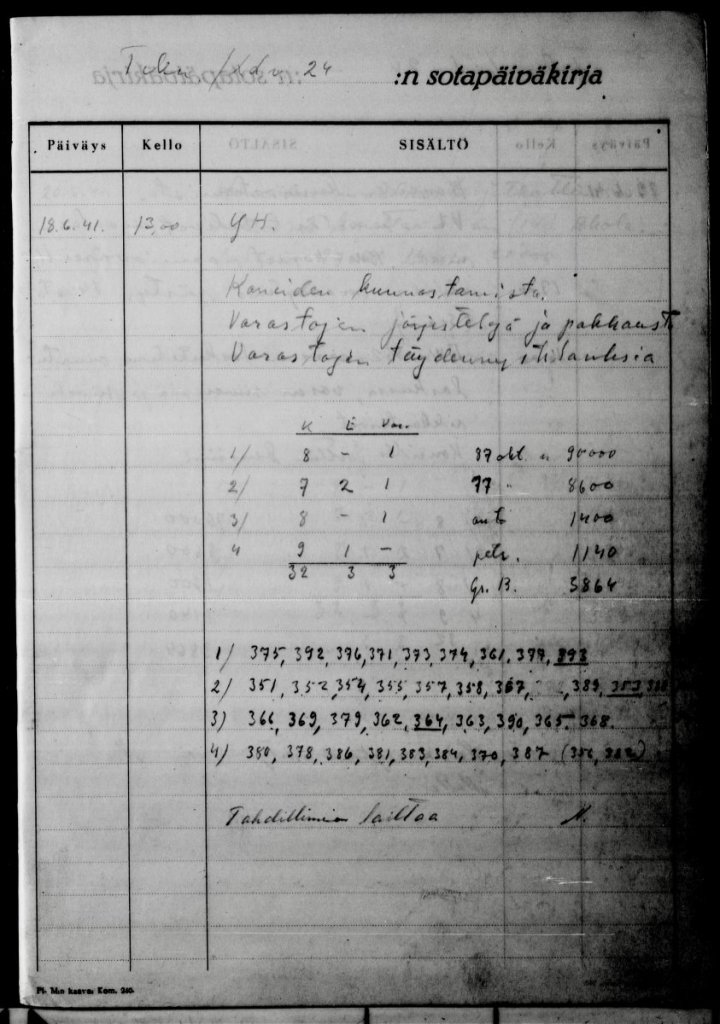 24 :n sotapäiväkirja
Päiväys Kello SISÄLTÖ
18.6.41. 13,00 YH.
Koneiden kunnostamista.
Varastojen järjestelyä ja pakkausta
Varastojen täydennystilauksia
K E Var.
1/ 8 - 1 87 okt. n 90000
2/ 7 2 1 77 " 8600
3/ 8 - 1 auto 1400
4 9 1 - petr. 1140
32 3 3
Gr. B. 3864
1/ 375, 392, 376, 371, 373, 374, 361, 377, 393
2/ 351, 352, 354, 355, 357, 358, 367, 389, 353,
3) 366, 369, 379, 362, 364, 363, 390, 365, 368.
4) 380, 378, 386, 381, 383, 384, 370, 387
laittoa
Pl. Min kaava: Kom. 240.